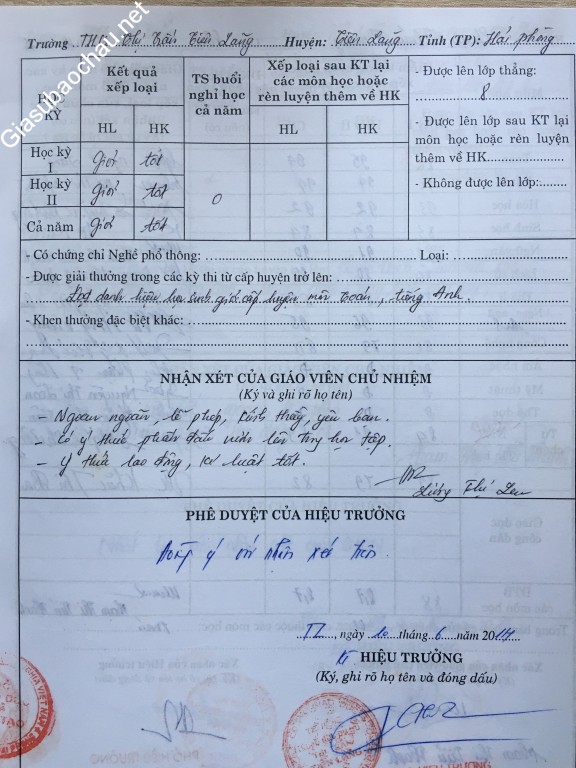 Giasubaochau.net
Trường THCS Thị Trấn Tiên Lãng Huyện: Tiên Lãng Tỉnh (TP): Hải phòng
HỌC KỲ
Kết quả xếp loại
HL HK
TS buổi nghỉ học cả năm
Xếp loại sau KT lại các môn học hoặc rèn luyện thêm về HK
HL HK
- Được lên lớp thẳng:
8
- Được lên lớp sau KT lại
môn học hoặc rèn luyện
thêm về HK
- Không được lên lớp:
Học kỳ I giỏi tốt
Học kỳ II giỏi tốt 0
Cả năm giỏi tốt
- Có chứng chỉ Nghề phổ thông: Loại:
- Được giải thưởng trong các kỳ thi từ cấp huyện trở lên:
Đạt danh hiệu học sinh giỏi cấp huyện môn toán, tiếng Anh.
- Khen thưởng đặc biệt khác:
NHẬN XÉT CỦA GIÁO VIÊN CHỦ NHIỆM
(Ký và ghi rõ họ tên)
- Ngoan ngoãn, lễ phép, kính thầy, yêu bạn.
- Có ý thức phấn đấu vươn lên trong học tập.
- Ý thức lao động, kỉ luật tốt.
PHÊ DUYỆT CỦA HIỆU TRƯỞNG
Đồng ý với nhận xét trên
TL, ngày 10 tháng 6 năm 2014
HIỆU TRƯỞNG
(Ký, ghi rõ họ tên và đóng dấu)